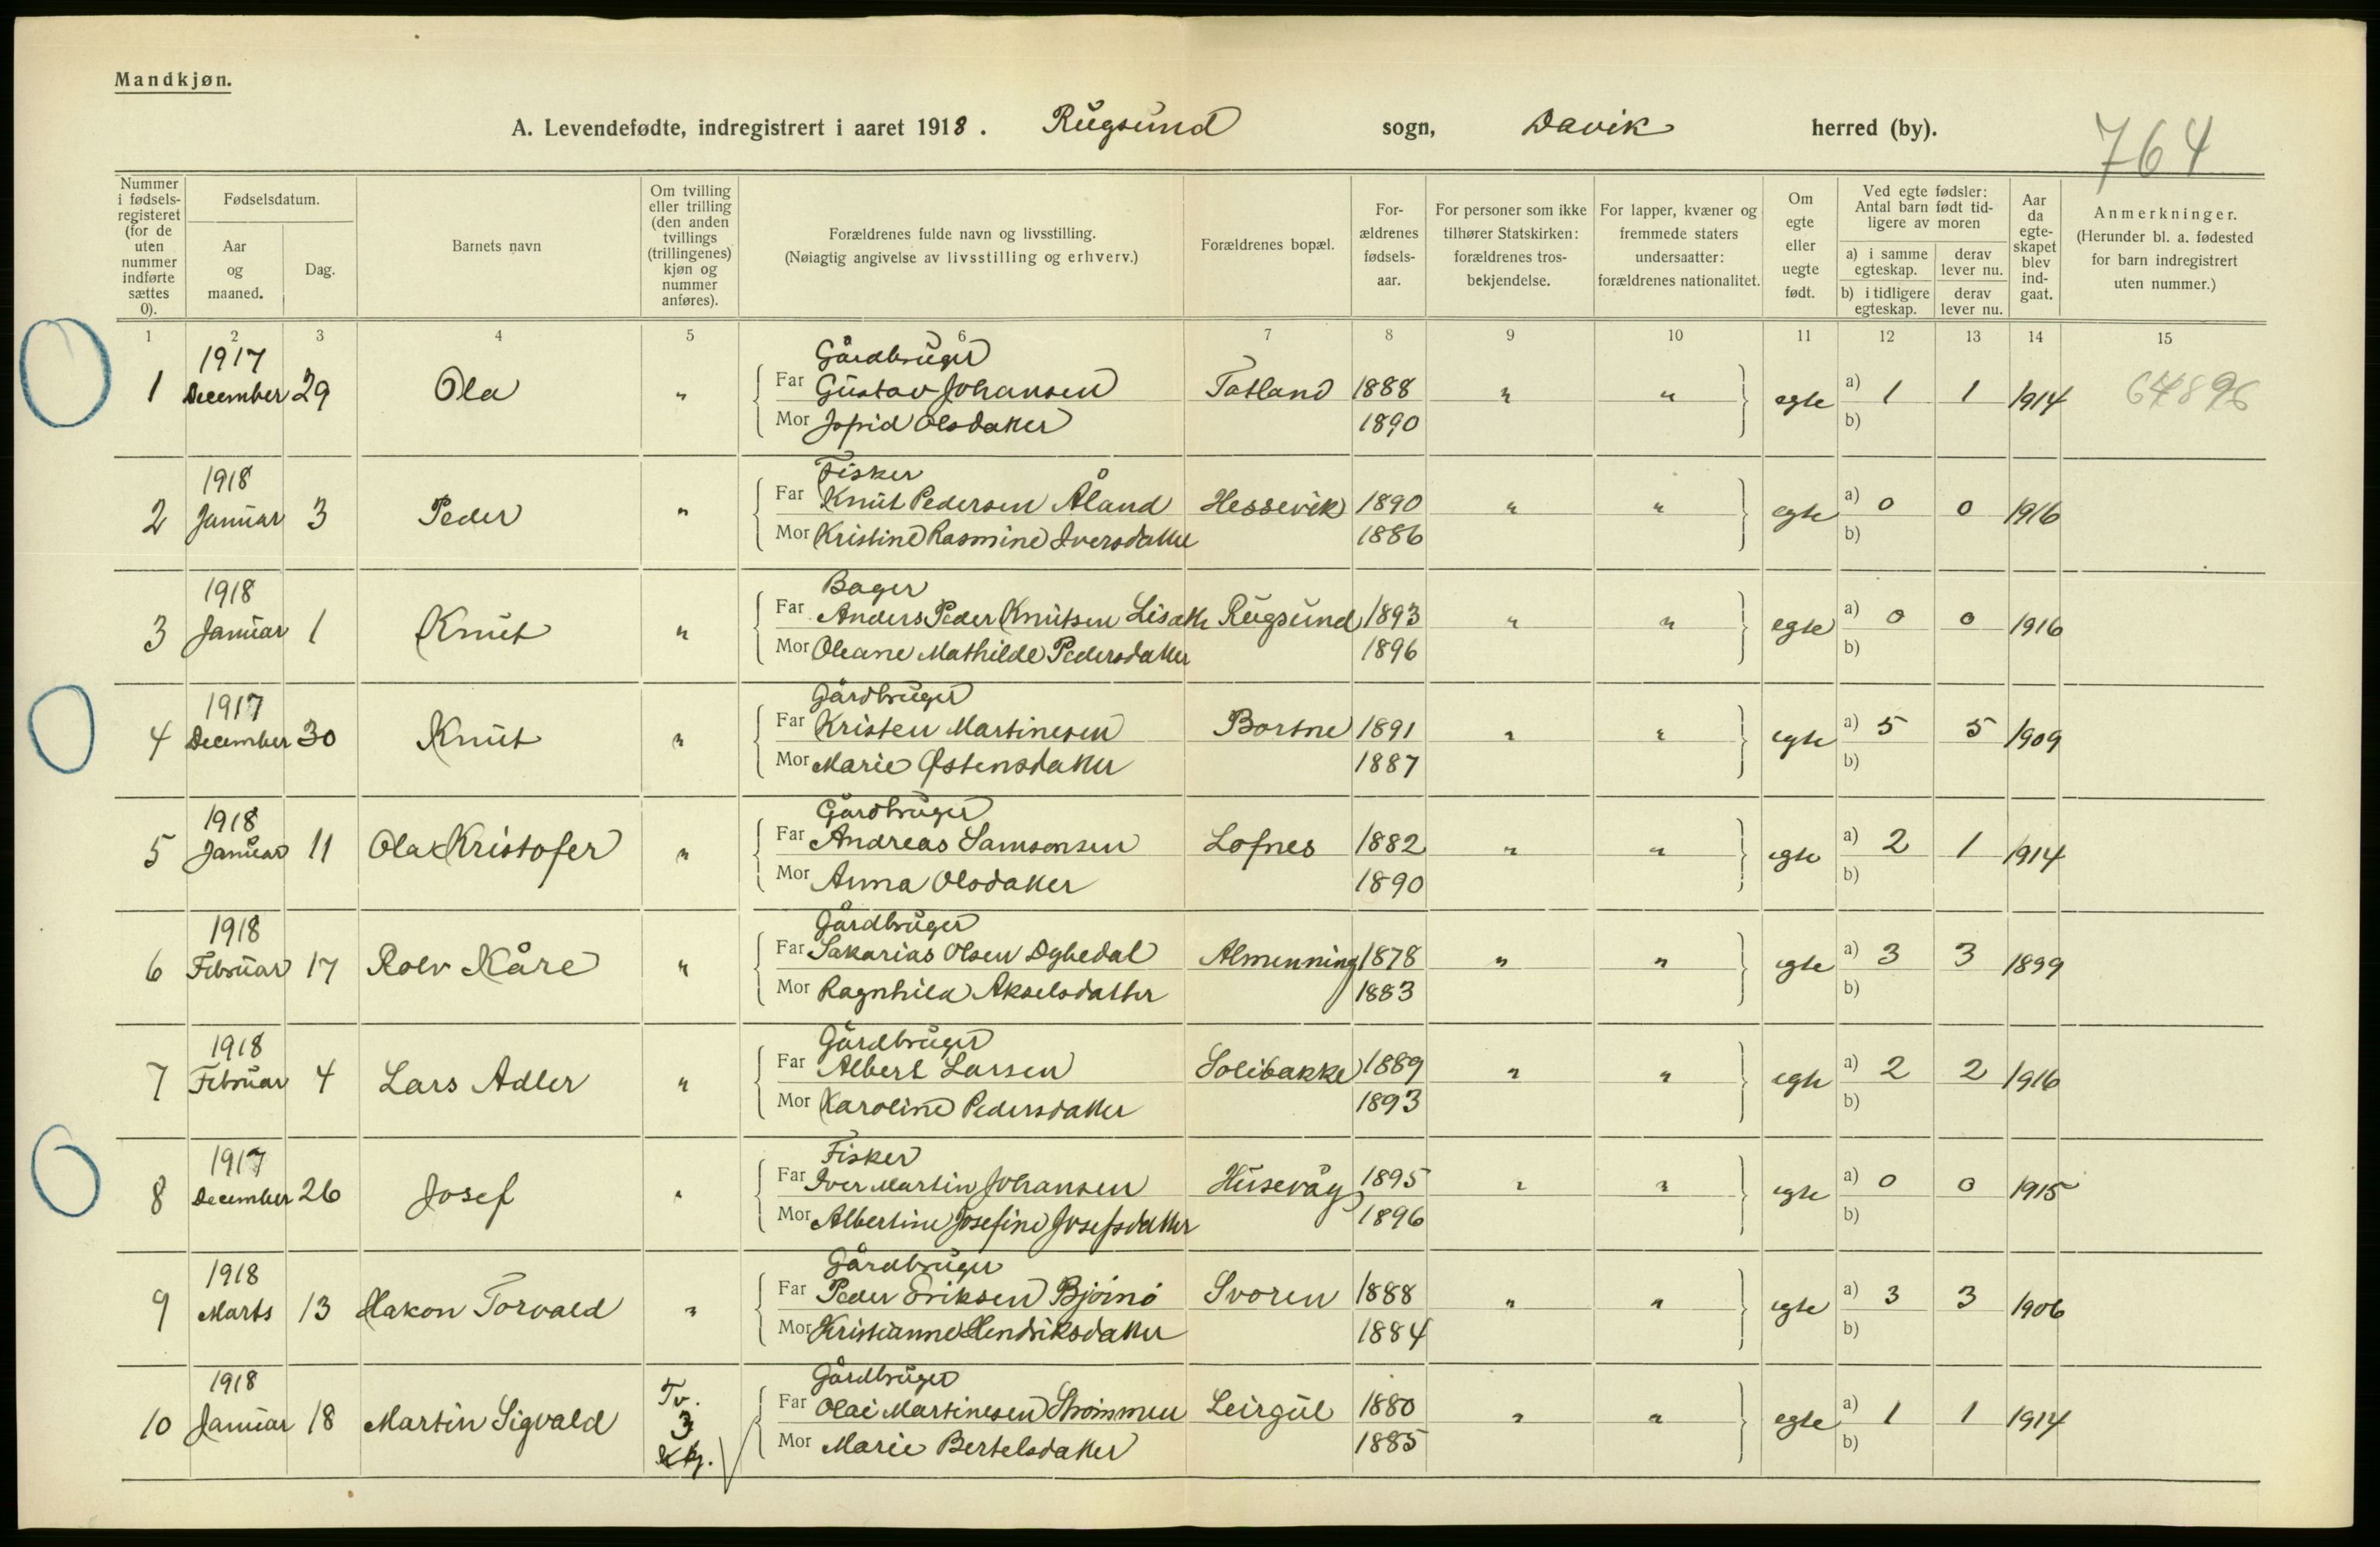 Mandkjøn.
A. Levendefødte, indregistrert i aaret 1918. Rugsund sogn, Davik herred (by).
764
Nummer i fødselsregisteret (for de uten nummer indførte sættes 0).
Fødselsdatum.
Aar og maaned.
Dag.
Barnets navn
Om tvilling eller trilling (den anden tvillings (trillingenes) kjøn og nummer anføres).
Forældrenes fulde navn og livsstilling.
(Nøiagtig angivelse av livsstilling og erhverv.)
Forældrenes bopæl.
Forældrenes fødselsaar.
For personer som ikke tilhører Statskirken: forældrenes trosbekjendelse.
For lapper, kvæner og fremmede staters undersaatter: forældrenes nationalitet.
Om egte eller uegte født.
Ved egte fødsler: Antal barn født tidligere av moren
a) i samme egteskap.
derav lever nu.
b) i tidligere egteskap.
derav lever nu.
Aar da egteskapet blev indgaat.
Anmerkninger.
(Herunder bl. a. fødested for barn indregistrert uten nummer.)
1 2 3 4 5 6 7 8 9 10 11 12 13 14 15
1917 Gårdbruger
1 December 29 Ola " Far Gustav Johansen Tatland 1888 " " egte a) 1 1 1914 64896
Mor Olsdatter 1890 b)
1918 Fisker
2 Januar 3 Peder " Far Knut Pedersen Åland Hessevik 1890 " " egte a) 0 0 1916
Mor Kristine Rasmine Iversdatter 1886 b)
1918 Bager
3 Januar 1 Knut " Far Anders Peder Knutsen Rugsund 1893 " " egte a) 0 0 1916
Mor Oleane Mathilde Pedersdatter 1896 b)
1917 Gårdbruger
4 December 30 Knut " Far Kristen Martinesen Bortne 1891 " " egte a) 5 5 1909
Mor Marie Østensdatter 1887 b)
1918 Gårdbruger
5 Januar 11 Ola Kristofer " Far Andreas Samsonsen Lofnes 1882 " " egte a) 2 1 1914
Mor Anna Olsdatter 1890 b)
1918 Gårdbruger
6 Februar 17 Rolv Kåre " Far Sakarias Olsen Dybedal Almenning 1878 " " egte a) 3 3 1899
Mor Ragnhild Akselsdatter 1883 b)
1918 Gårdbruger
7 Februar 4 Lars Adler " Far Albert Larsen Solibakke 1889 " " egte a) 2 2 1916
Mor Karoline Pedersdatter 1893 b)
1917 Fisker
8 December 26 Josef " Far Iver Martin Johansen Husevåg 1895 " " egte a) 0 0 1915
Mor Albertine Josefine Josefsdatter 1896 b)
1918 Gårdbruger
9 Marts 13 Hakon Torvald " Far Peder Eriksen Bjőinő Svoren 1888 " " egte a) 3 3 1906
Mor Kristianne Hendriksdatter 1884 b)
1918 Tv. Gårdbruger
10 Januar 18 Martin Sigvald 3 Far Olai Martinesen Strømmen Leirgul 1880 " " egte a) 1 1 1914
Kkj. Mor Marie Bertelsdatter 1885 b)